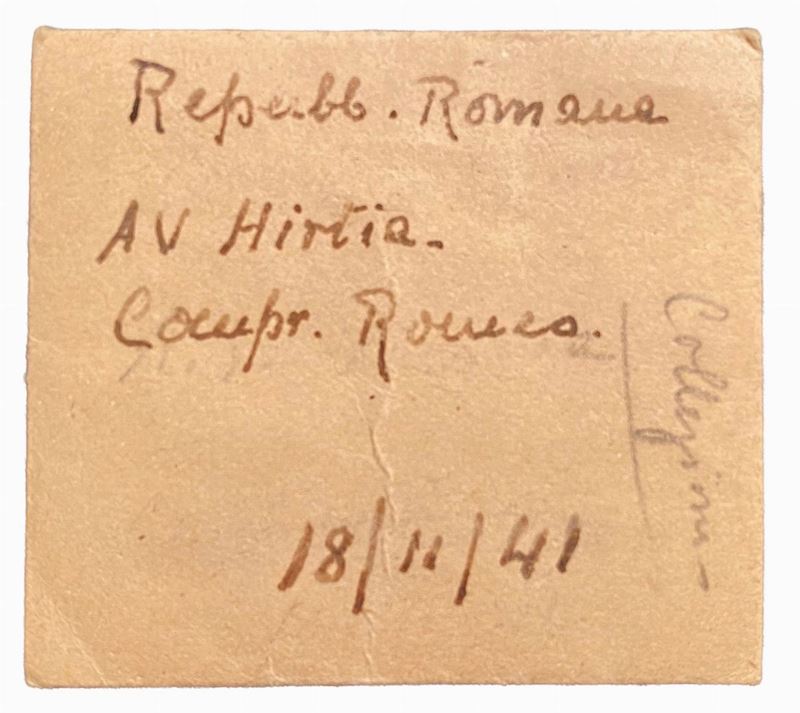 Repubb. Romana
AV Hirtia.
Compr. Romeo.
18/11/41